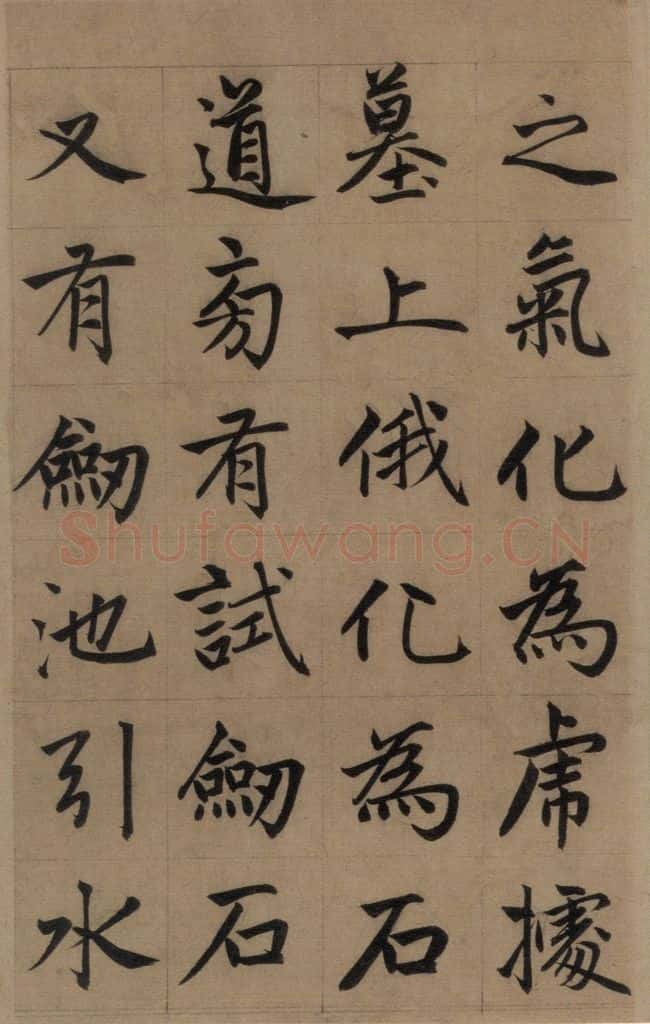 之氣化為虎據
墓上俄化為石
道旁有試劒石
又有劒池引水
Shufawang.CN